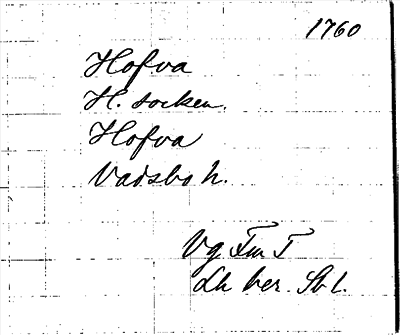 1760
Hofva
H. socken.
Hofva
Vadsbo h.
Vg Fm T
Lh ber. Sbl.